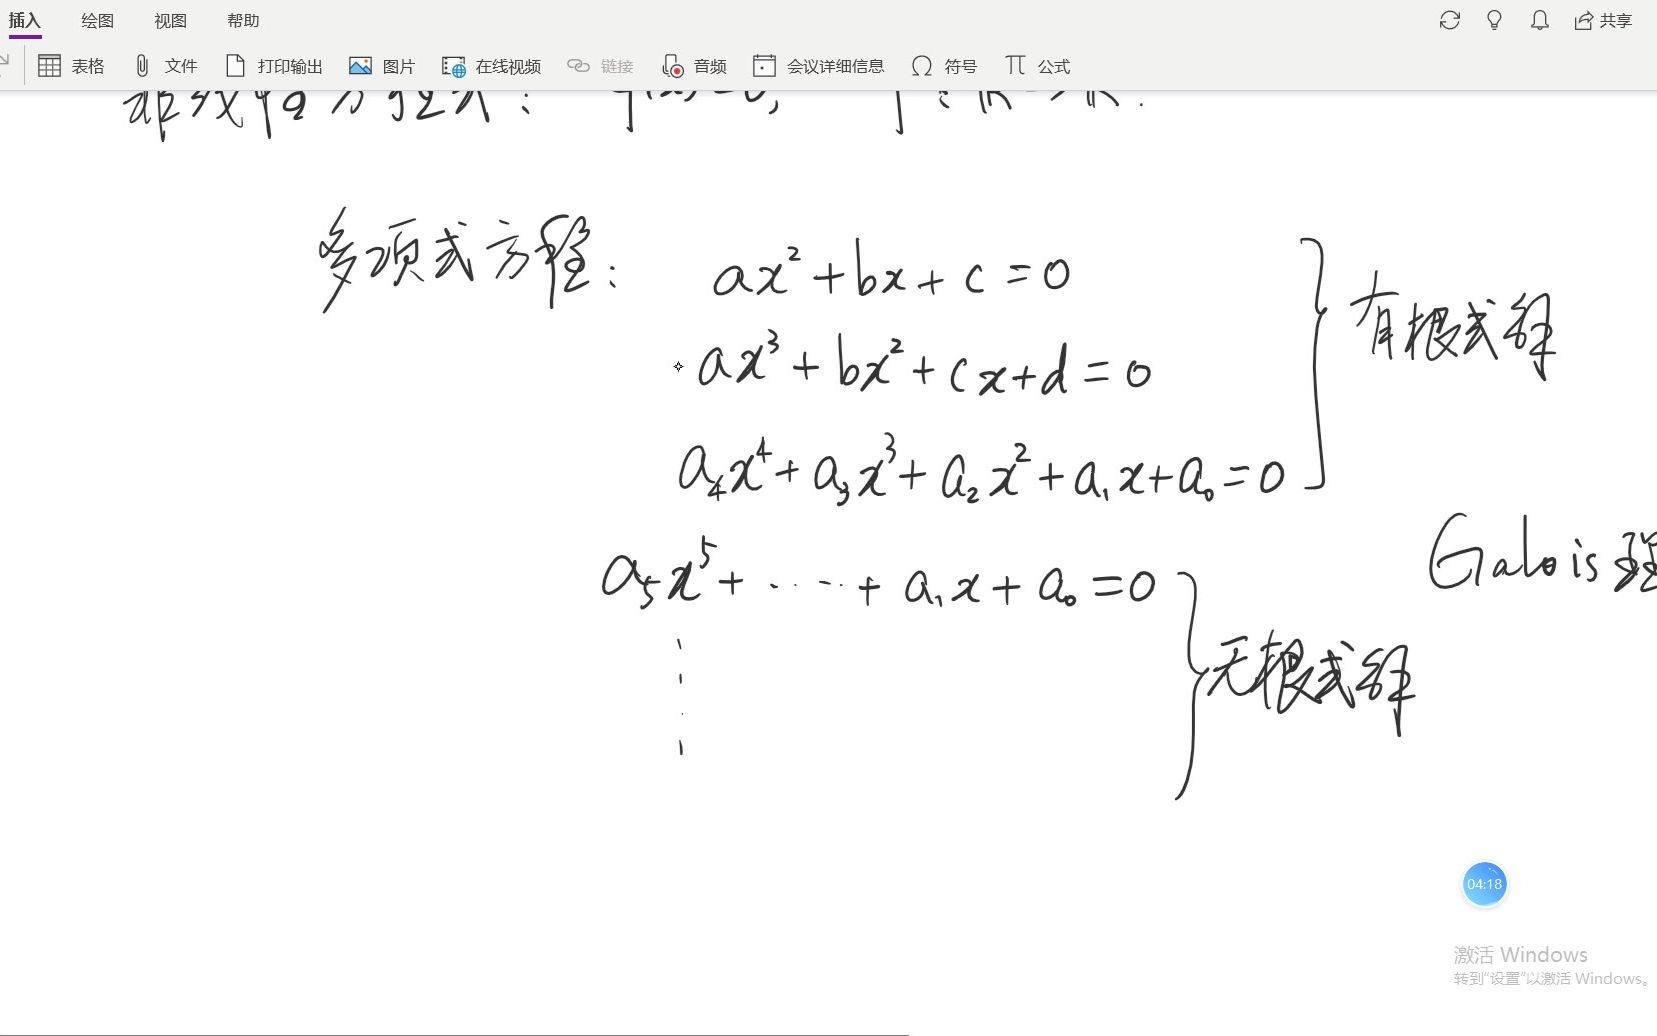 插入 绘图 视图 帮助 共享
表格 文件 打印输出 图片 在线视频 链接 音频 会议详细信息 符号 公式
非线性方程式: f(x)=0, f:ℝ→ℝ.
多项式方程: ax²+bx+c=0
ax³+bx²+cx+d=0
有根式解
a₄x⁴+a₃x³+a₂x²+a₁x+a₀=0
Galois 理
a₅x⁵+·····+a₁x+a₀=0
无根式解
04:18
激活 Windows
转到“设置”以激活 Windows。